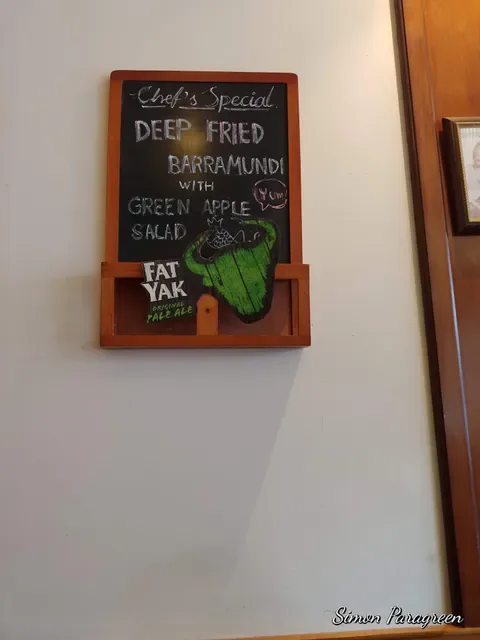 Chef's Special
DEEP FRIED
BARRAMUNDI
WITH
Yum!
GREEN APPLE
SALAD
FAT
YAK
ORIGINAL
PALE ALE
Simon Paragreen